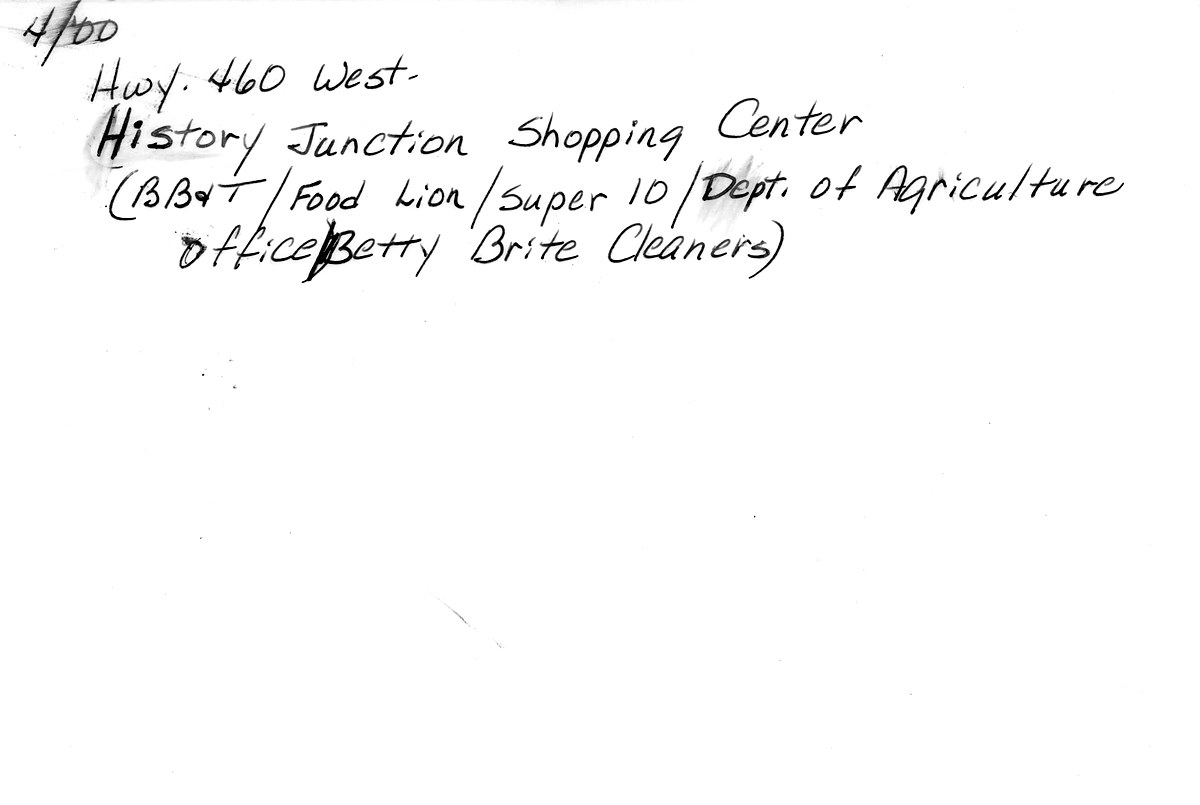 4/00
Hwy. 460 West-
History Junction Shopping Center
(BB&T/Food Lion/Super 10/Dept. of Agriculture
office/Betty Brite Cleaners)